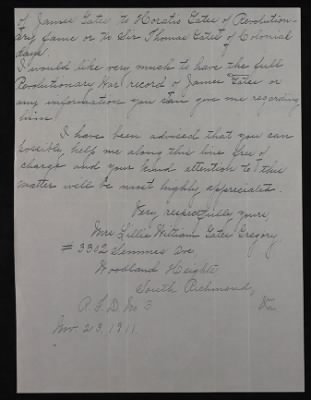 of James Gates to Horatio Gates of Revolution-
ary fame or to Sir Thomas Gates of Colonial
days.
I would like very much to have the full
Revolutionary War record of James Gates or
any information you can give me regarding
him.
I have been advised that you can
possibly help me along this line free of
charge and your kind attention to this
matter will be most highly appreciated.
Very respectfully yours,
Mrs Lillie William Gates Gregory
# 3302 Semmes Ave
Woodland Heights
South Richmond,
Va.
R. F. D. No 3
Nov. 23, 1911.